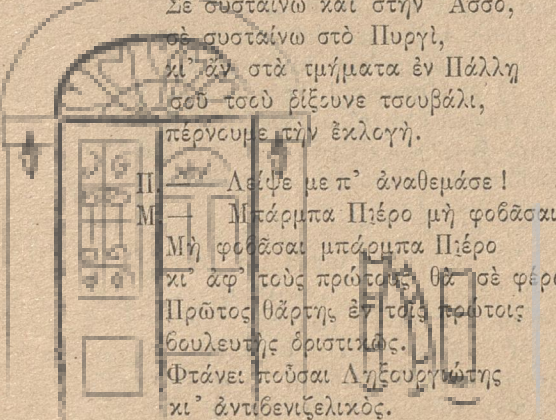 Σὲ συσταίνω καὶ στὴν Ἄσσο,
σὲ συσταίνω στὸ Πυργὶ,
κι' ἂν στὰ τμήματα ἐν Πάλλῃ
σοῦ τσοὺ ῥίξουνε τσουβάλι,
πέρνουμε τὴν ἐκλογή.
Π. — Λείψε με π' ἀναθεμάσε !
Μ — Μπάρμπα Πιέρο μὴ φοβᾶσαι
Μὴ φοβᾶσαι μπάρμπα Πιέρο
κι' ἀφ' τοὺς πρώτους θὰ σὲ φέρ
Πρῶτος θἄρτης ἐν τοῖς πρώτοις
βουλευτὴς ὁριστικῶς.
Φτάνει ποὖσαι Ληξουργιώτης
κι' ἀντιβενιζελικὸς.